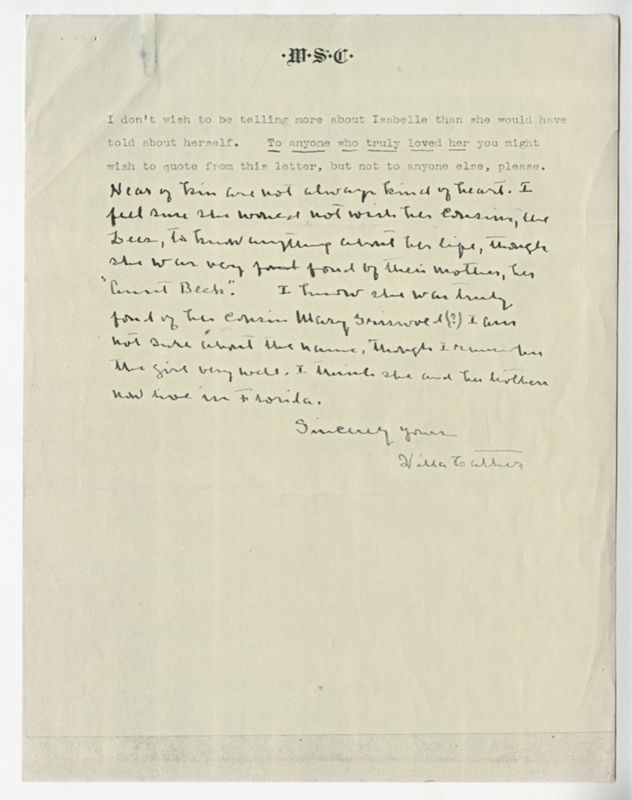 ·W·S·C·
I don't wish to be telling more about Isabelle than she would have
told about herself. To anyone who truly loved her you might
wish to quote from this letter, but not to anyone else, please.
Near of kin are not always kind of heart. I
feel sure she would not wish her cousins, the
Lees, to know anything about her life, though
she was very fond of their mother, her
"Aunt Beck". I know she was truly
fond of her cousin Mary Griswold(?) I am
not sure about the name, though I remember
the girl very well. I think she and her mother
now live in Florida.
Sincerely yours
Willa Cather